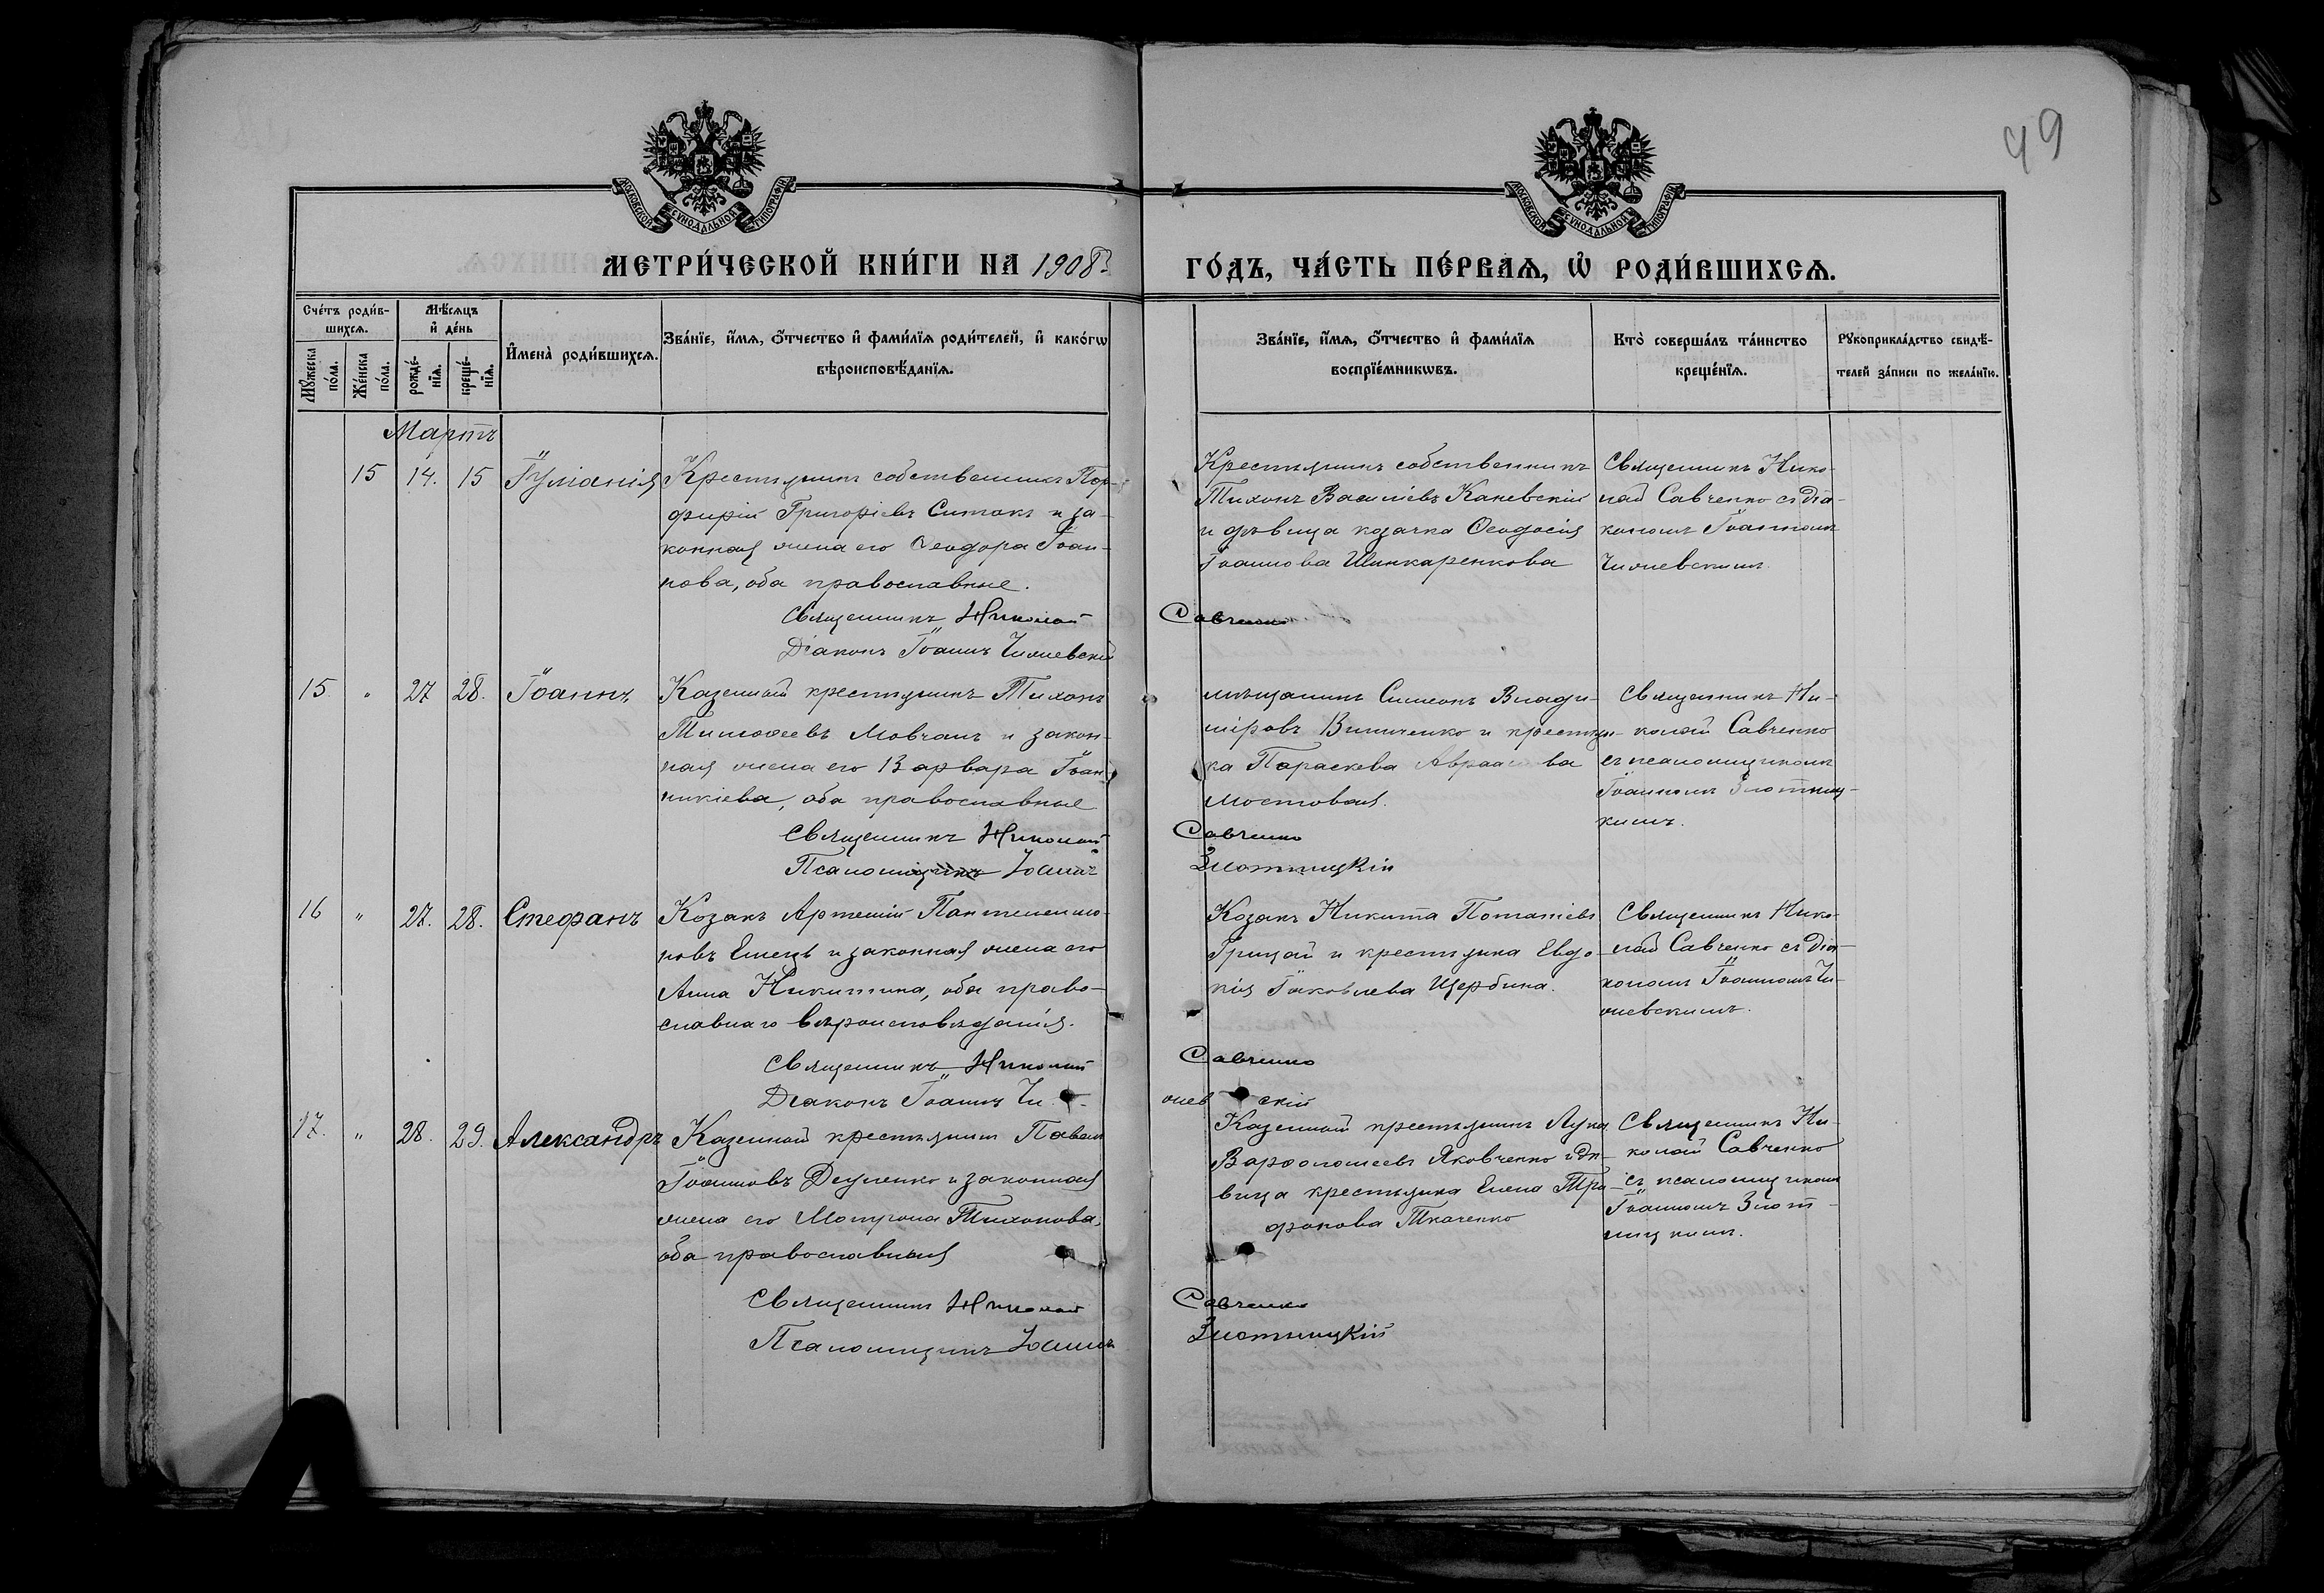 49
МОСКОВСКОЙ СУНОДАЛЬНОЙ ТИПОГРАФІИ
МОСКОВСКОЙ СУНОДАЛЬНОЙ ТИПОГРАФІИ
МЕТРИ́ЧЕСКОЙ КНИ́ГИ НА 1908
ГО́ДЪ, ЧА́СТЬ ПЕ́РВАѦ, Ѡ РОДИ́ВШИХСѦ.
Сче́тъ роди́в-
шихсѧ.
Мꙋ́жеска
по́ла.
Же́нска
по́ла.
Мѣ́сѧцъ
и҆ де́нь
рожде́-
нїѧ.
креще́-
нїѧ.
И҆мена̀ роди́вшихсѧ.
Зва́нїе, и҆́мѧ, ѻ҆́тчество и҆ фами́лїѧ роди́телей, и҆ како́гѡ
вѣроисповѣ́данїѧ.
Зва́нїе, и҆́мѧ, ѻ҆́тчество и҆ фами́лїѧ
воспрїе́мникѡвъ.
Кто̀ соверша́лъ та́инство
креще́нїѧ.
Рꙋкоприкла́дство свидѣ́-
телей за́писи по жела́нїю.
Мартъ
15 14. 15 Іуліанія
Крестьянинъ собственникъ Пор-
фирій Григоріевъ Ситакъ и за-
конная жена его Ѳеодора Іоан-
нова, оба православные.
Священникъ Николай
Діаконъ Іоаннъ Чижевскій
Крестьянинъ собственникъ
Тихонъ Василіевъ Каневскій
и дѣвица козачка Ѳеодосія
Іоаннова Шинкаренкова
Савченко
Священникъ Нико-
лай Савченко съ діа-
кономъ Іоанномъ
Чижевскимъ.
15 " 27 28. Іоаннъ
Казенный крестьянинъ Тихонъ
Тимоѳеевъ Мовчанъ и закон-
ная жена его Варвара Іоан-
никіева, оба православные
Священникъ Николай
Псаломщикъ Іоаннъ
мѣщанинъ Симеонъ Влади-
міровъ Винниченко и крестьян-
ка Параскева
Мостовая.
Савченко
Злотницкій
Священникъ Ни-
колай Савченко
съ псаломщикомъ
Іоанномъ Злотниц-
кимъ.
16 " 27. 28. Стефанъ
Козакъ Артемій Пантелеимо-
новъ Емецъ и законная жена его
Анна Никитина, оба право-
славнаго вѣроисповѣданія.
Священникъ Николай
Діаконъ Іоаннъ Чи-
Козакъ Никита Потапіевъ
Грицай и крестьянка Евдо-
кія Іаковлева Щербина.
Савченко
жев скій
Священникъ Нико-
лай Савченко съ діа-
кономъ Іоанномъ Чи-
жевскимъ.
17. " 28. 29. Александръ
Казенный крестьянинъ Павелъ
Іоанновъ Деуленко и законная
жена его Матрона Тихонова,
оба православныя
Священникъ Николай
Псаломщикъ Іоаннъ
Казенный крестьянинъ Лука
Варѳоломеевъ Яковченко и дѣ-
вица крестьянка Елена Тро-
фимова Ткаченко
Савченко
Злотницкій
Священникъ Ни-
колай Савченко
съ псаломщикомъ
Іоанномъ Злот-
ницкимъ.